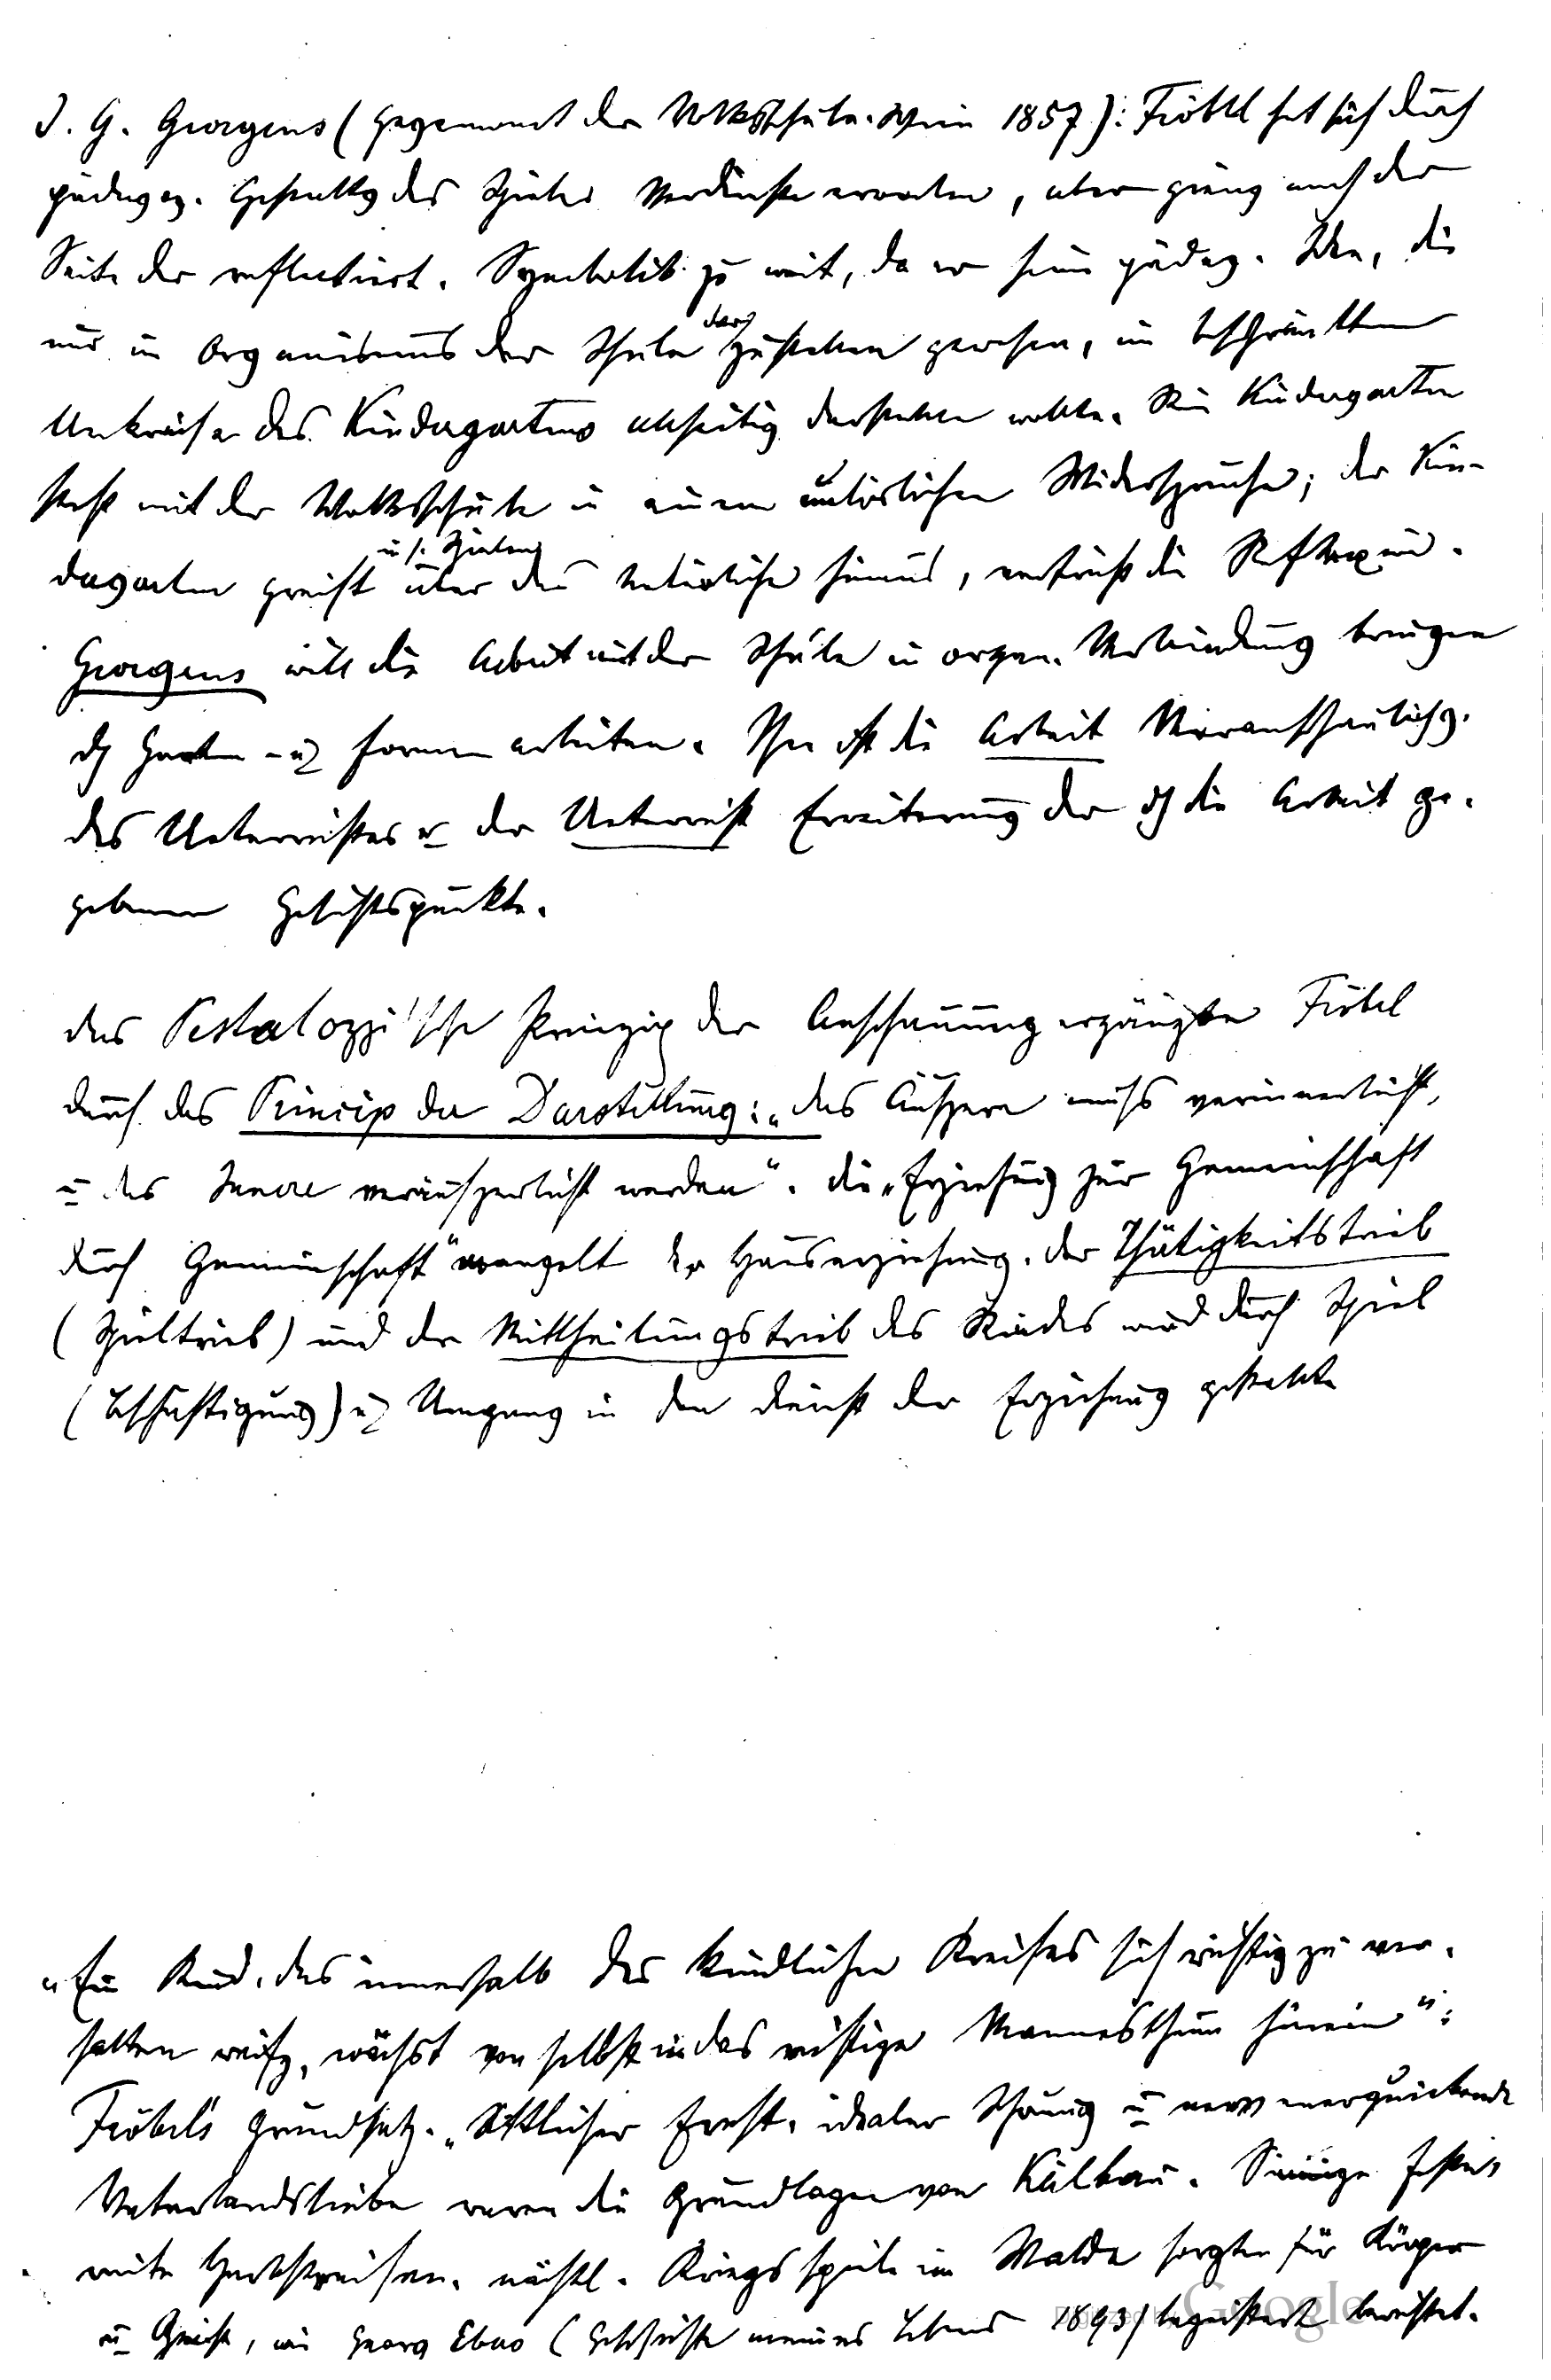 J. G. Georgens (Gegenwart der Volksschule. Wien 1857): Fröbel hat sich durch
pädagog. Gestaltg des Spieles Verdienste erworben, aber gieng nach der
Seite der reflectiert. Symbolik zu weit, da er seine pädag. Idee, die
nur im Organismus der Schule darzustellen gewesen, im beschränkten
Umkreise des Kindergartens allseitig darstellen wollte. Sein Kindergarten
steht mit der Volksschule in einem unlöslichen Widerspruche; der Kin-
dergarten greift in s. Spielen über das Natürliche hinaus, verfrüht die Reflexion.
Georgens will die Arbeit mit der Schule in organ. Verbindung bringen
dch Garten- u. Formenarbeiten. Ihm ist die Arbeit Veranschaulichg.
des Unterrichtes u der Unterricht Erweiterung der dch die Arbeit ge-
gebenen Gesichtspunkte.
Das Pestalozzi'sche Prinzip der Anschauung ergänzte Fröbel
durch das Princip der Darstellung: „das Äußere muß verinnerlicht,
u das Innere veräußerlicht werden“. Die „Erziehung zur Gemeinschaft
durch Gemeinschaft“ mangelt der Hauserziehung. Der Thätigkeitstrieb
(Spieltrieb) und der Mittheilungstrieb des Kindes wird durch Spiel
(Beschäftigung) u. Umgang in den Dienst der Erziehung gestellt.
„Ein Kind, das innerhalb des kindlichen Kreises sich richtig zu ver-
halten weiß, wächst von selbst in das richtige Mannesthum hinein“:
Fröbel's Grundsatz. „Sittlicher Ernst, idealer Schwung u nervenerquickende
Vaterlandsliebe waren die Grundlagen von Keilhau. Sinnige Feste,
weite Herbstreisen, nächtl. Kriegsspiele im Walde sorgten für Körper
u Geist, wie Georg Ebers (Geschichte meines Lebens 1893) begeistert berichtet.
Digitized by Google